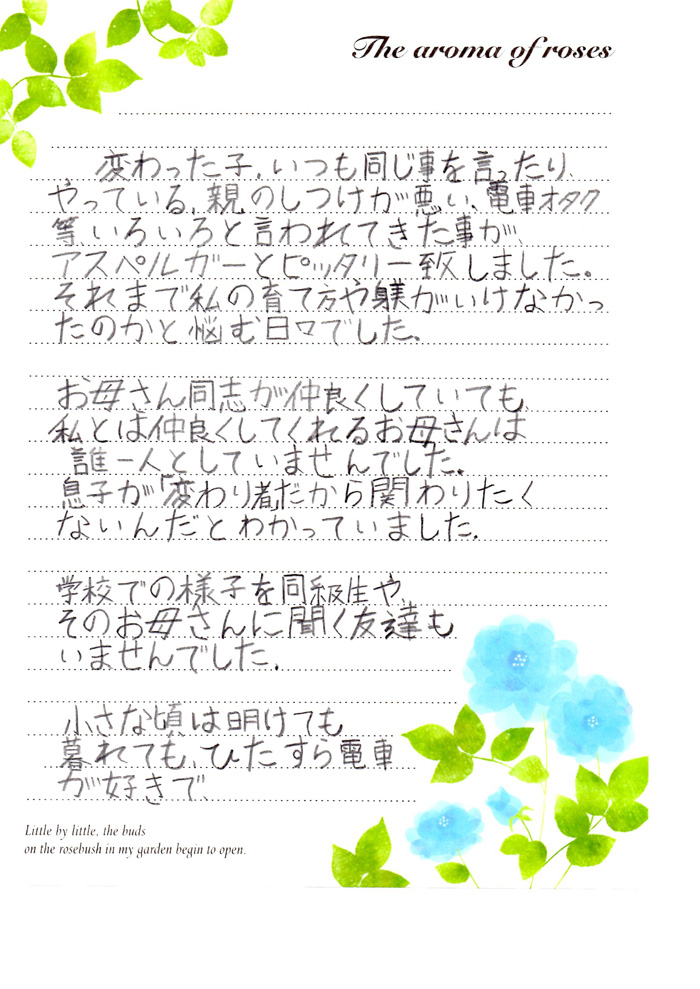 The aroma of roses
変わった子、いつも同じ事を言ったり、
やっている、親のしつけが悪い、電車オタク
等、いろいろと言われてきた事が、
アスペルガーとピッタリ一致しました。
それまで私の育て方や躾がいけなかっ
たのかと悩む日々でした。
お母さん同志が仲良くしていても
私とは仲良くしてくれるお母さんは
誰一人としていませんでした。
息子が「変わり者」だから関わりたく
ないんだとわかっていました。
学校での様子を同級生や、
そのお母さんに聞く友達も
いませんでした。
小さな頃は明けても
暮れても、ひたすら電車
が好きで、
Little by little, the buds
on the rosebush in my garden begin to open.